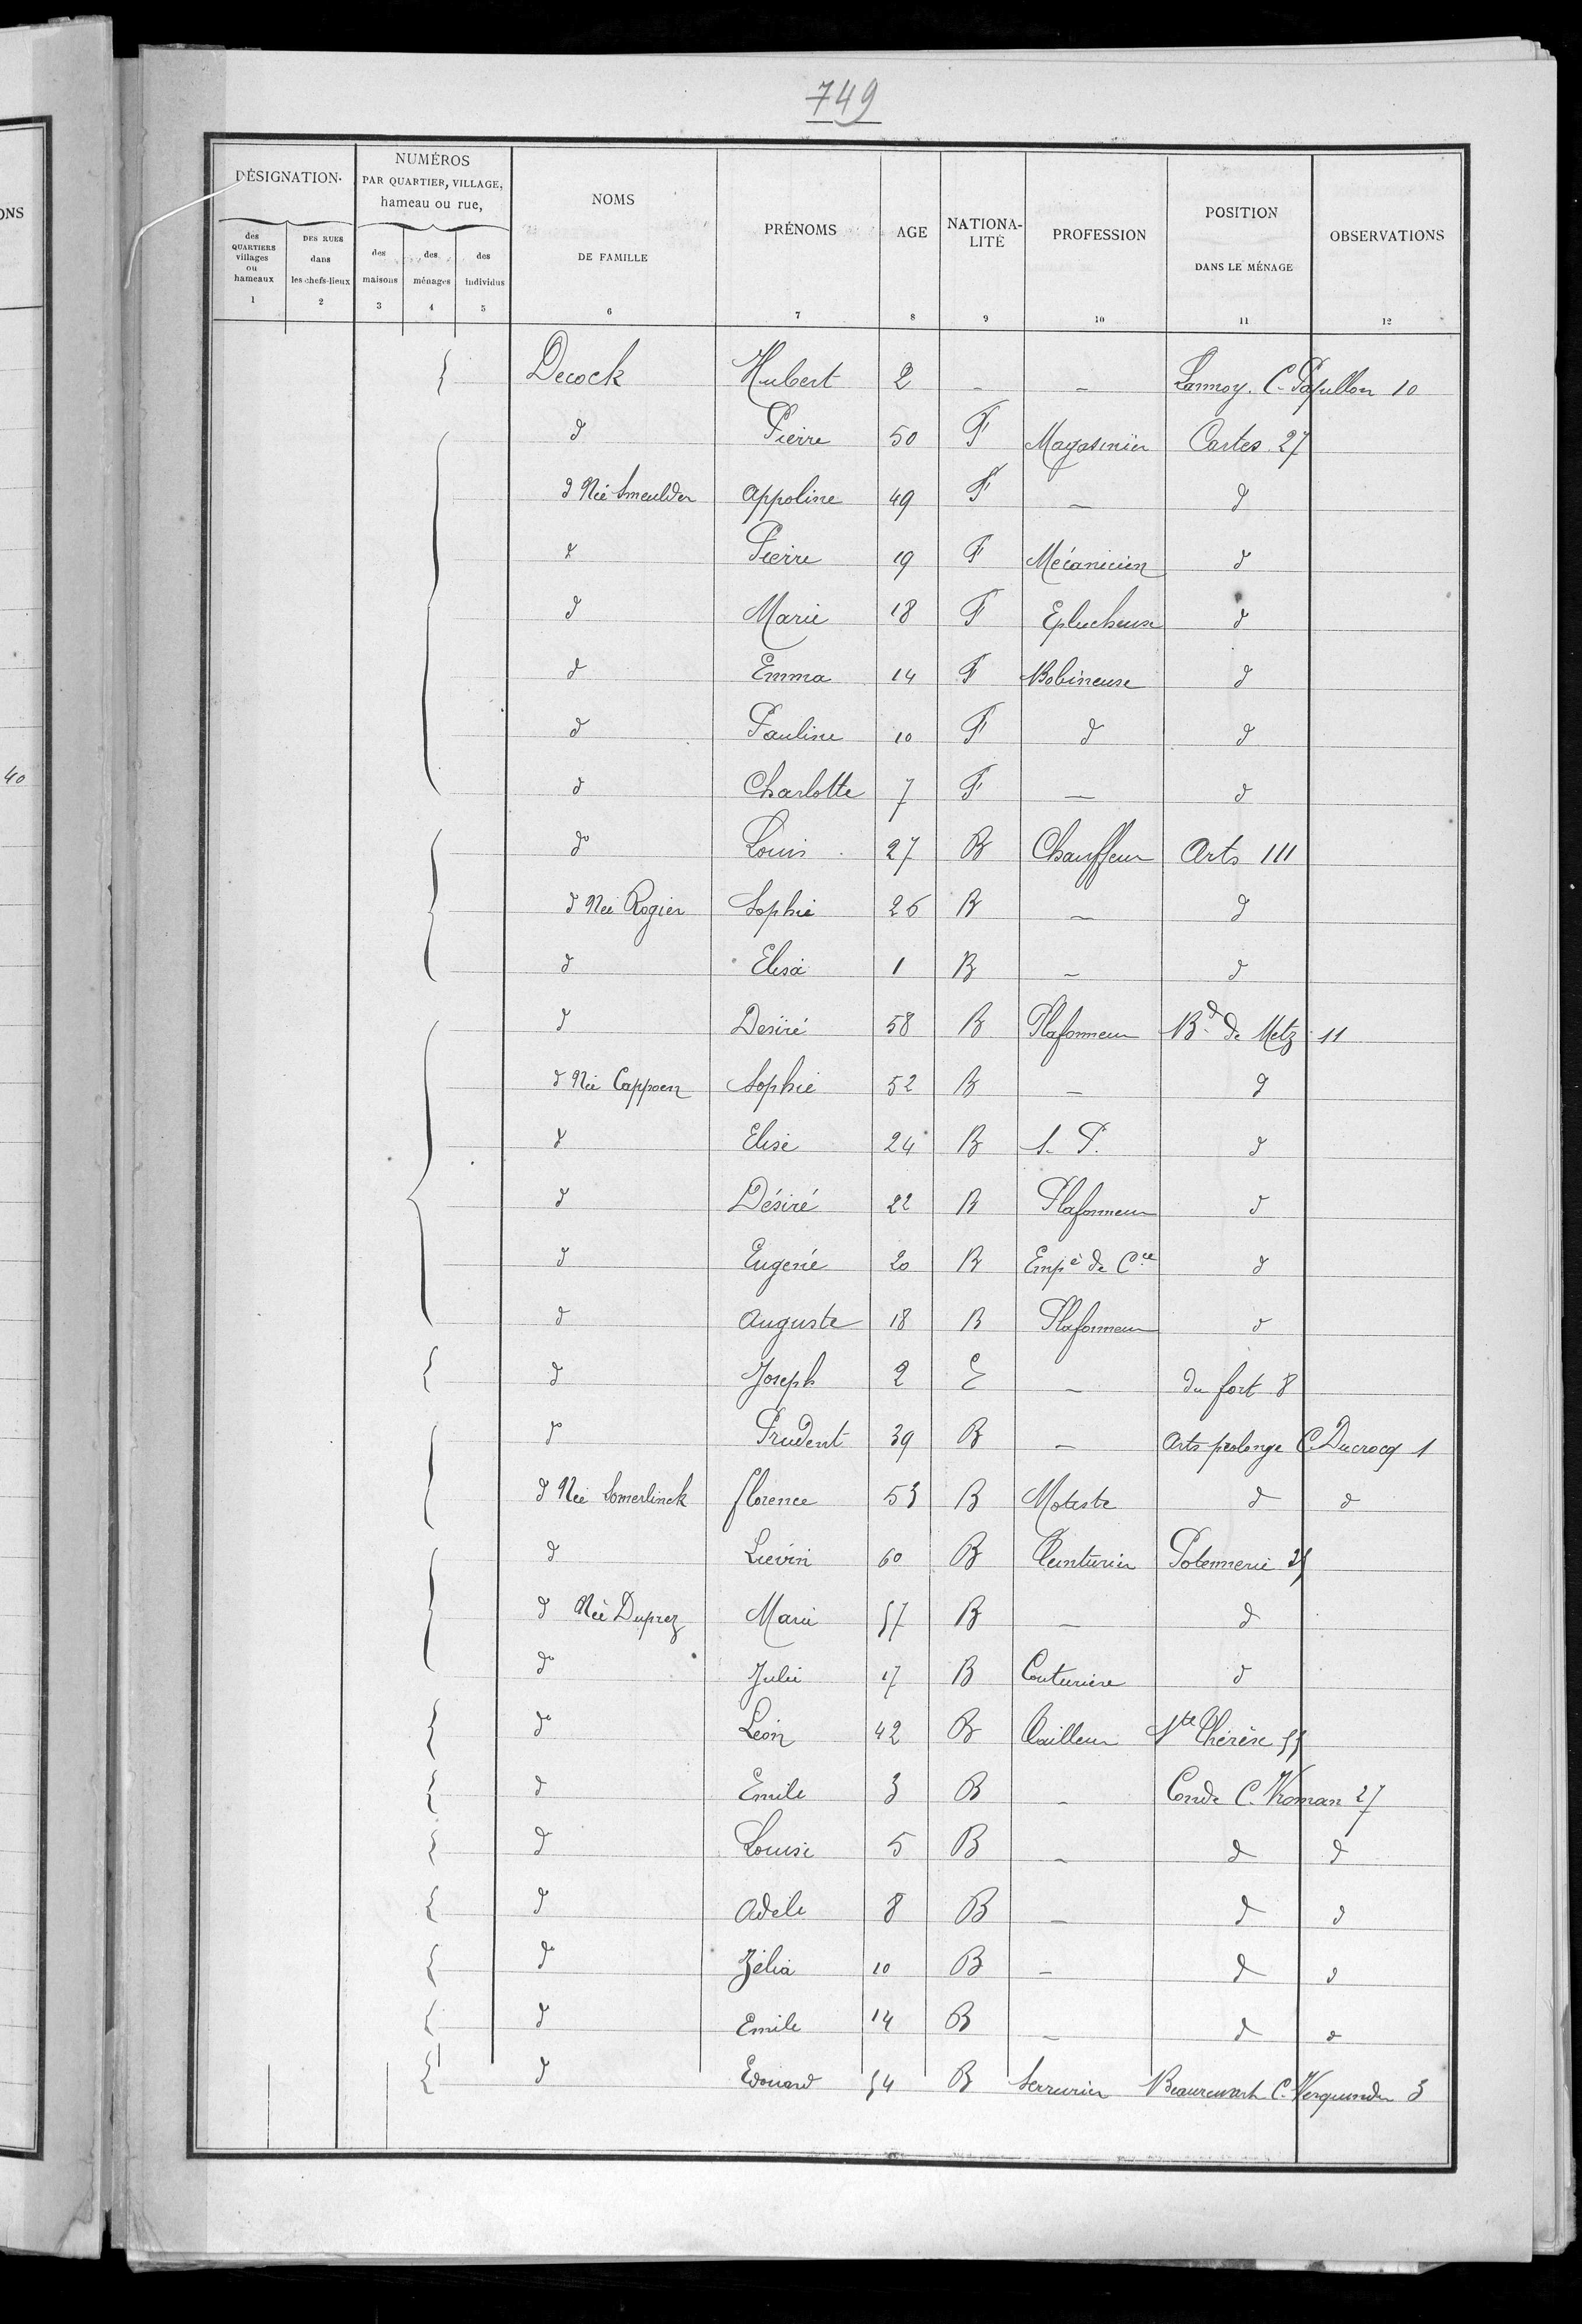 749
DÉSIGNATION
NUMÉROS PAR QUARTIER, VILLAGE, hameau ou rue,
NOMS DE FAMILLE
PRÉNOMS
AGE
NATIONA-LITÉ
PROFESSION
POSITION DANS LE MÉNAGE
OBSERVATIONS
des QUARTIERS villages ou hameaux
DES RUES dans les chefs-lieux
des maisons
des ménages
des individus
1 2 3 4 5 6 7 8 9 10 11 12
Decock Hubert 2 - - Lannoy. C. Papillon 10
d Pierre 50 F Magasinier Cartes. 27
d Née Smeulder Appoline 49 F — d
d Pierre 19 F Mécanicien d
d Marie 18 F Eplucheuse d
d Emma 14 F Bobineuse d
d Pauline 10 F d d
d Charlotte 7 F — d
do Louis 27 B Chauffeur Arts 111
d Née Rogier Sophie 26 B — d
d Elisa 1 B - d
d Desiré 58 B Plafonneur Bd de Metz 11
d Née Cappoen Sophie 52 B - d
d Elise 24 B S. P. d
d Désiré 22 B Plafonneur d
d Eugenie 20 B Empé de Cce d
d Auguste 18 B Plafonneur d
d Joseph 2 E - du fort 8
do Prudent 39 B - Arts prolongé C. Ducrocq 1
d Née Somerlinck Florence 53 B Modiste d d
d Lievin 60 B Teinturier Potennerie 25
d Née Duprez Marie 57 B - d
do Julie 17 B Couturiere d
do Leon 42 B Tailleur Ste Thérèse 55
d Emile 3 B - Condé C. Vroman 27
d Louise 5 B - d d
d Adele 8 B - d d
d Zélia 10 B - d d
d Emile 14 B - d d
d Edouard 54 B Serrurier Beaurewart C. 3
ONS
40